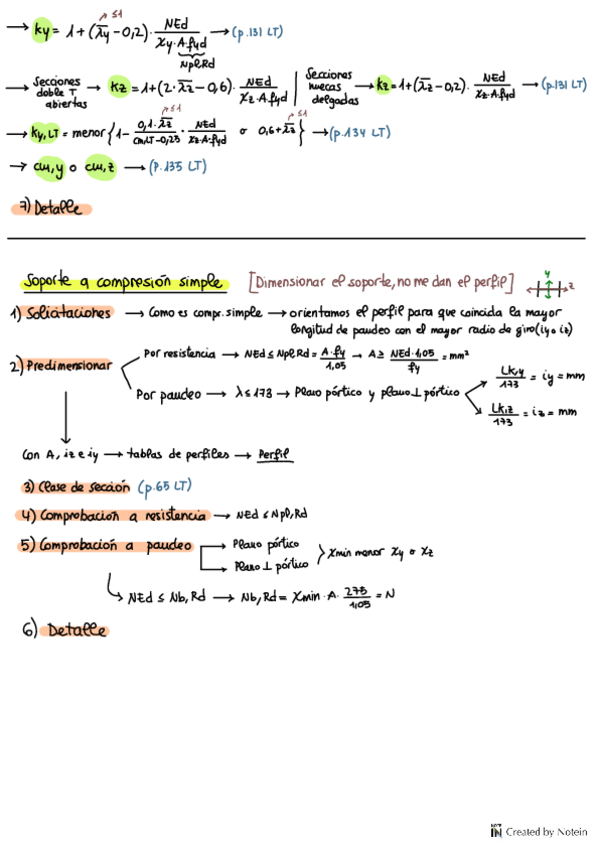 → ky = 1 + (λ̄y ≤1 − 0,2) · NEd / (χy · A · fyd) → (p.131 LT)
Npl,Rd
→ Secciones doble T abiertas → kz = 1 + (2 · λ̄z ≤1 − 0,6) · NEd / (χz · A · fyd) | Secciones huecas delgadas → kz = 1 + (λ̄z ≤1 − 0,2) · NEd / (χz · A · fyd) → (p.131 LT)
→ ky,LT = menor { 1 − (0,1 · λ̄z ≤1) / (cm,LT − 0,25) · NEd / (χz · A · fyd) o 0,6 + λ̄z ≤1 } → (p.134 LT)
→ cm,y o cm,z → (P.135 LT)
7) Detalle
Soporte a compresión simple [Dimensionar el soporte, no me dan el perfil] y z
1) Solicitaciones → Como es compr. simple → orientamos el perfil para que coincida la mayor
longitud de pandeo con el mayor radio de giro (iy o iz)
2) Predimensionar
Por resistencia → NEd ≤ Npl,Rd = A · fy / 1,05 → A ≥ NEd · 1,05 / fy = mm²
Por pandeo → λ ≤ 173 → Plano pórtico y plano ⊥ pórtico
Lk,y / 173 = iy = mm
Lk,z / 173 = iz = mm
Con A, iz e iy → tablas de perfiles → Perfil
3) Clase de sección (p.65 LT)
4) Comprobación a resistencia → NEd ≤ Npl,Rd
5) Comprobación a pandeo → Plano pórtico
→ Plano ⊥ pórtico
χmin menor χy o χz
NEd ≤ Nb,Rd → Nb,Rd = χmin · A · 275 / 1,05 = N
6) Detalle
NOTE IN Created by Notein